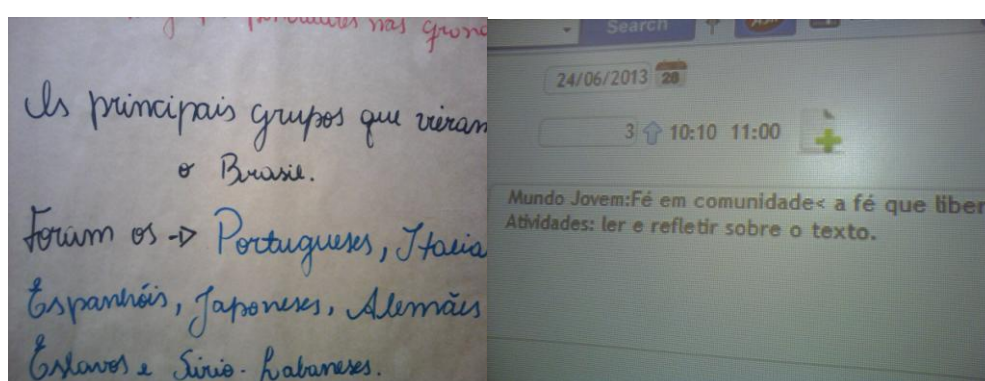 portugueses nas
Os principais grupos que vieram
o Brasil.
Foram os -> Portugueses, Italia
Espanhóis, Japoneses, Alemães
Eslavos e Sírio-Labaneses.
Search
24/06/2013 28
3 10:10 11:00
Mundo Jovem:Fé em comunidade< a fé que liber
Atividades: ler e refletir sobre o texto.